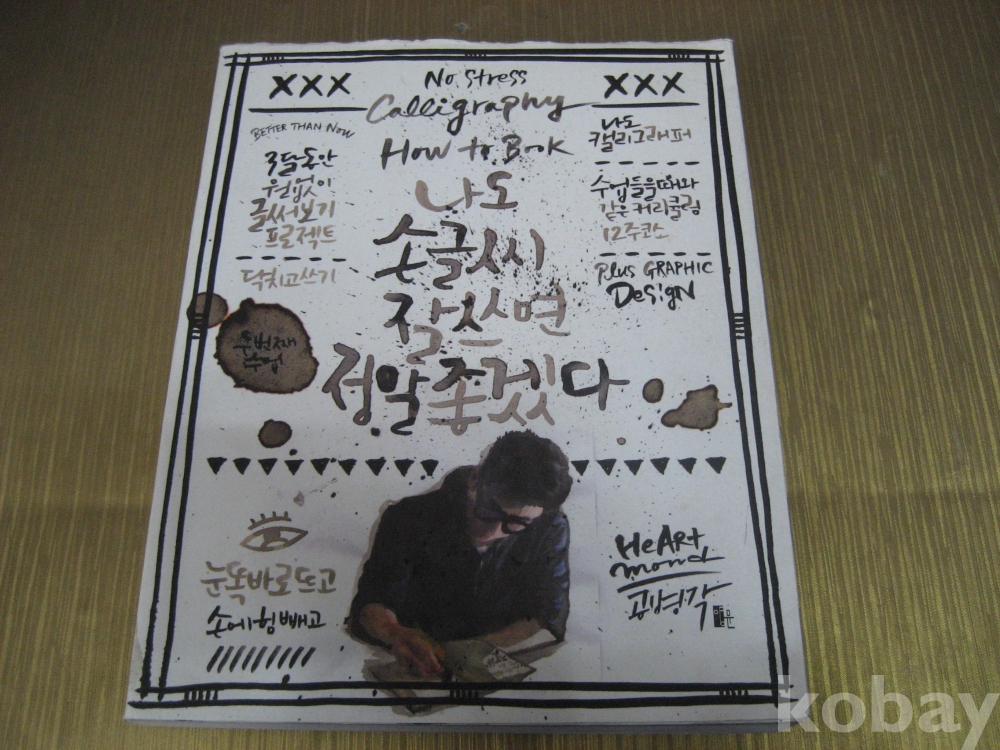 XXX
No Stress
Calligraphy
How to Book
XXX
BETTER THAN NOW
3달동안
원없이
글써보기
프로젝트
닥치고쓰기
나도
손글씨
잘쓰면
정말좋겠다
나도
캘리그래퍼
수업들을때와
같은커리큘럼
12주코스
Plus GRAPHIC
DeSigN
두번째
수업
눈똑바로뜨고
손에힘빼고
HeARt
mond
공병각
kobay